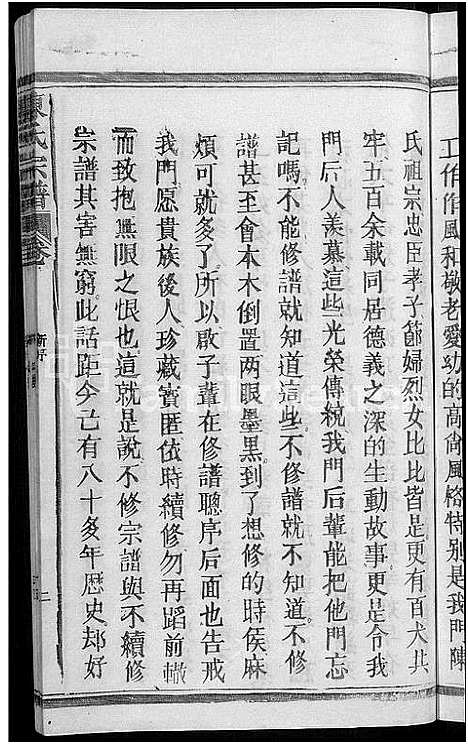 工作作風和敬老愛幼的高尙風格特别是我門陳
氏祖宗忠臣孝子節婦烈女比比皆是更有百犬共
牢五百余載同居德義之深的生動故事更是令我
門后人羡慕這些光榮傳統我門后輩能把他門忘
記嗎不修譜就知道這些不修譜就不知道不修
譜甚至會本木倒置两眼墨黑到了想修的時侯麻
煩可就多了所以啟子輩在修譜聰序后面也告戒
我門愿貴族後人珍藏寳匿依時續修勿再蹈前轍
而致抱無限之恨也這就是說不修宗譜與不續修
宗譜其害無窮此話距今已有八十多年歷史却好
陳氏宗譜
新序